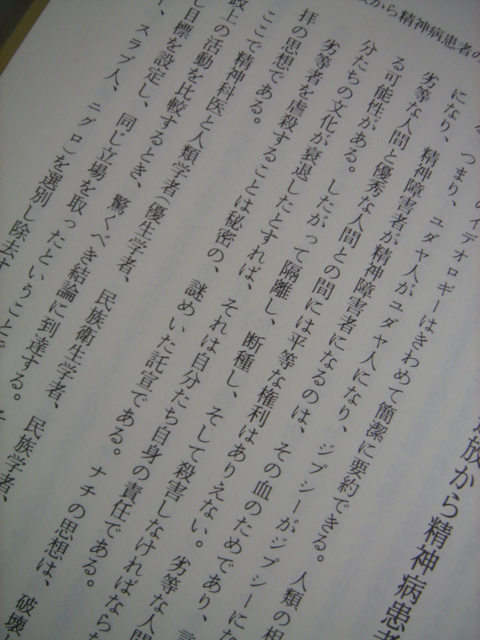 から精神病患者の
放から精神病患者
のイデオロギーはきわめて簡潔に要約できる。人類の
つまり、ユダヤ人がユダヤ人になり、ジプシーがジプシーにな
になり、精神障害者が精神障害者になるのは、その血のためであり、
劣等な人間と優秀な人間との間には平等な権利はありえない。劣等な人間
る可能性がある。したがって隔離し、断種し、そして殺害しなければならな
分たちの文化が衰退したとすれば、それは自分たち自身の責任である。
劣等者を虐殺することは秘密の、謎めいた託宣である。ナチの思想は、破壊
拝の思想である。
ここで精神科医と人類学者(優生学者、民族衛生学者、民族学者、
政上の活動を比較するとき、驚くべき結論に到達する。
し目標を設定し、同じ立場を取ったということで
ー、スラブ人、ニグロ)を選別し除去す